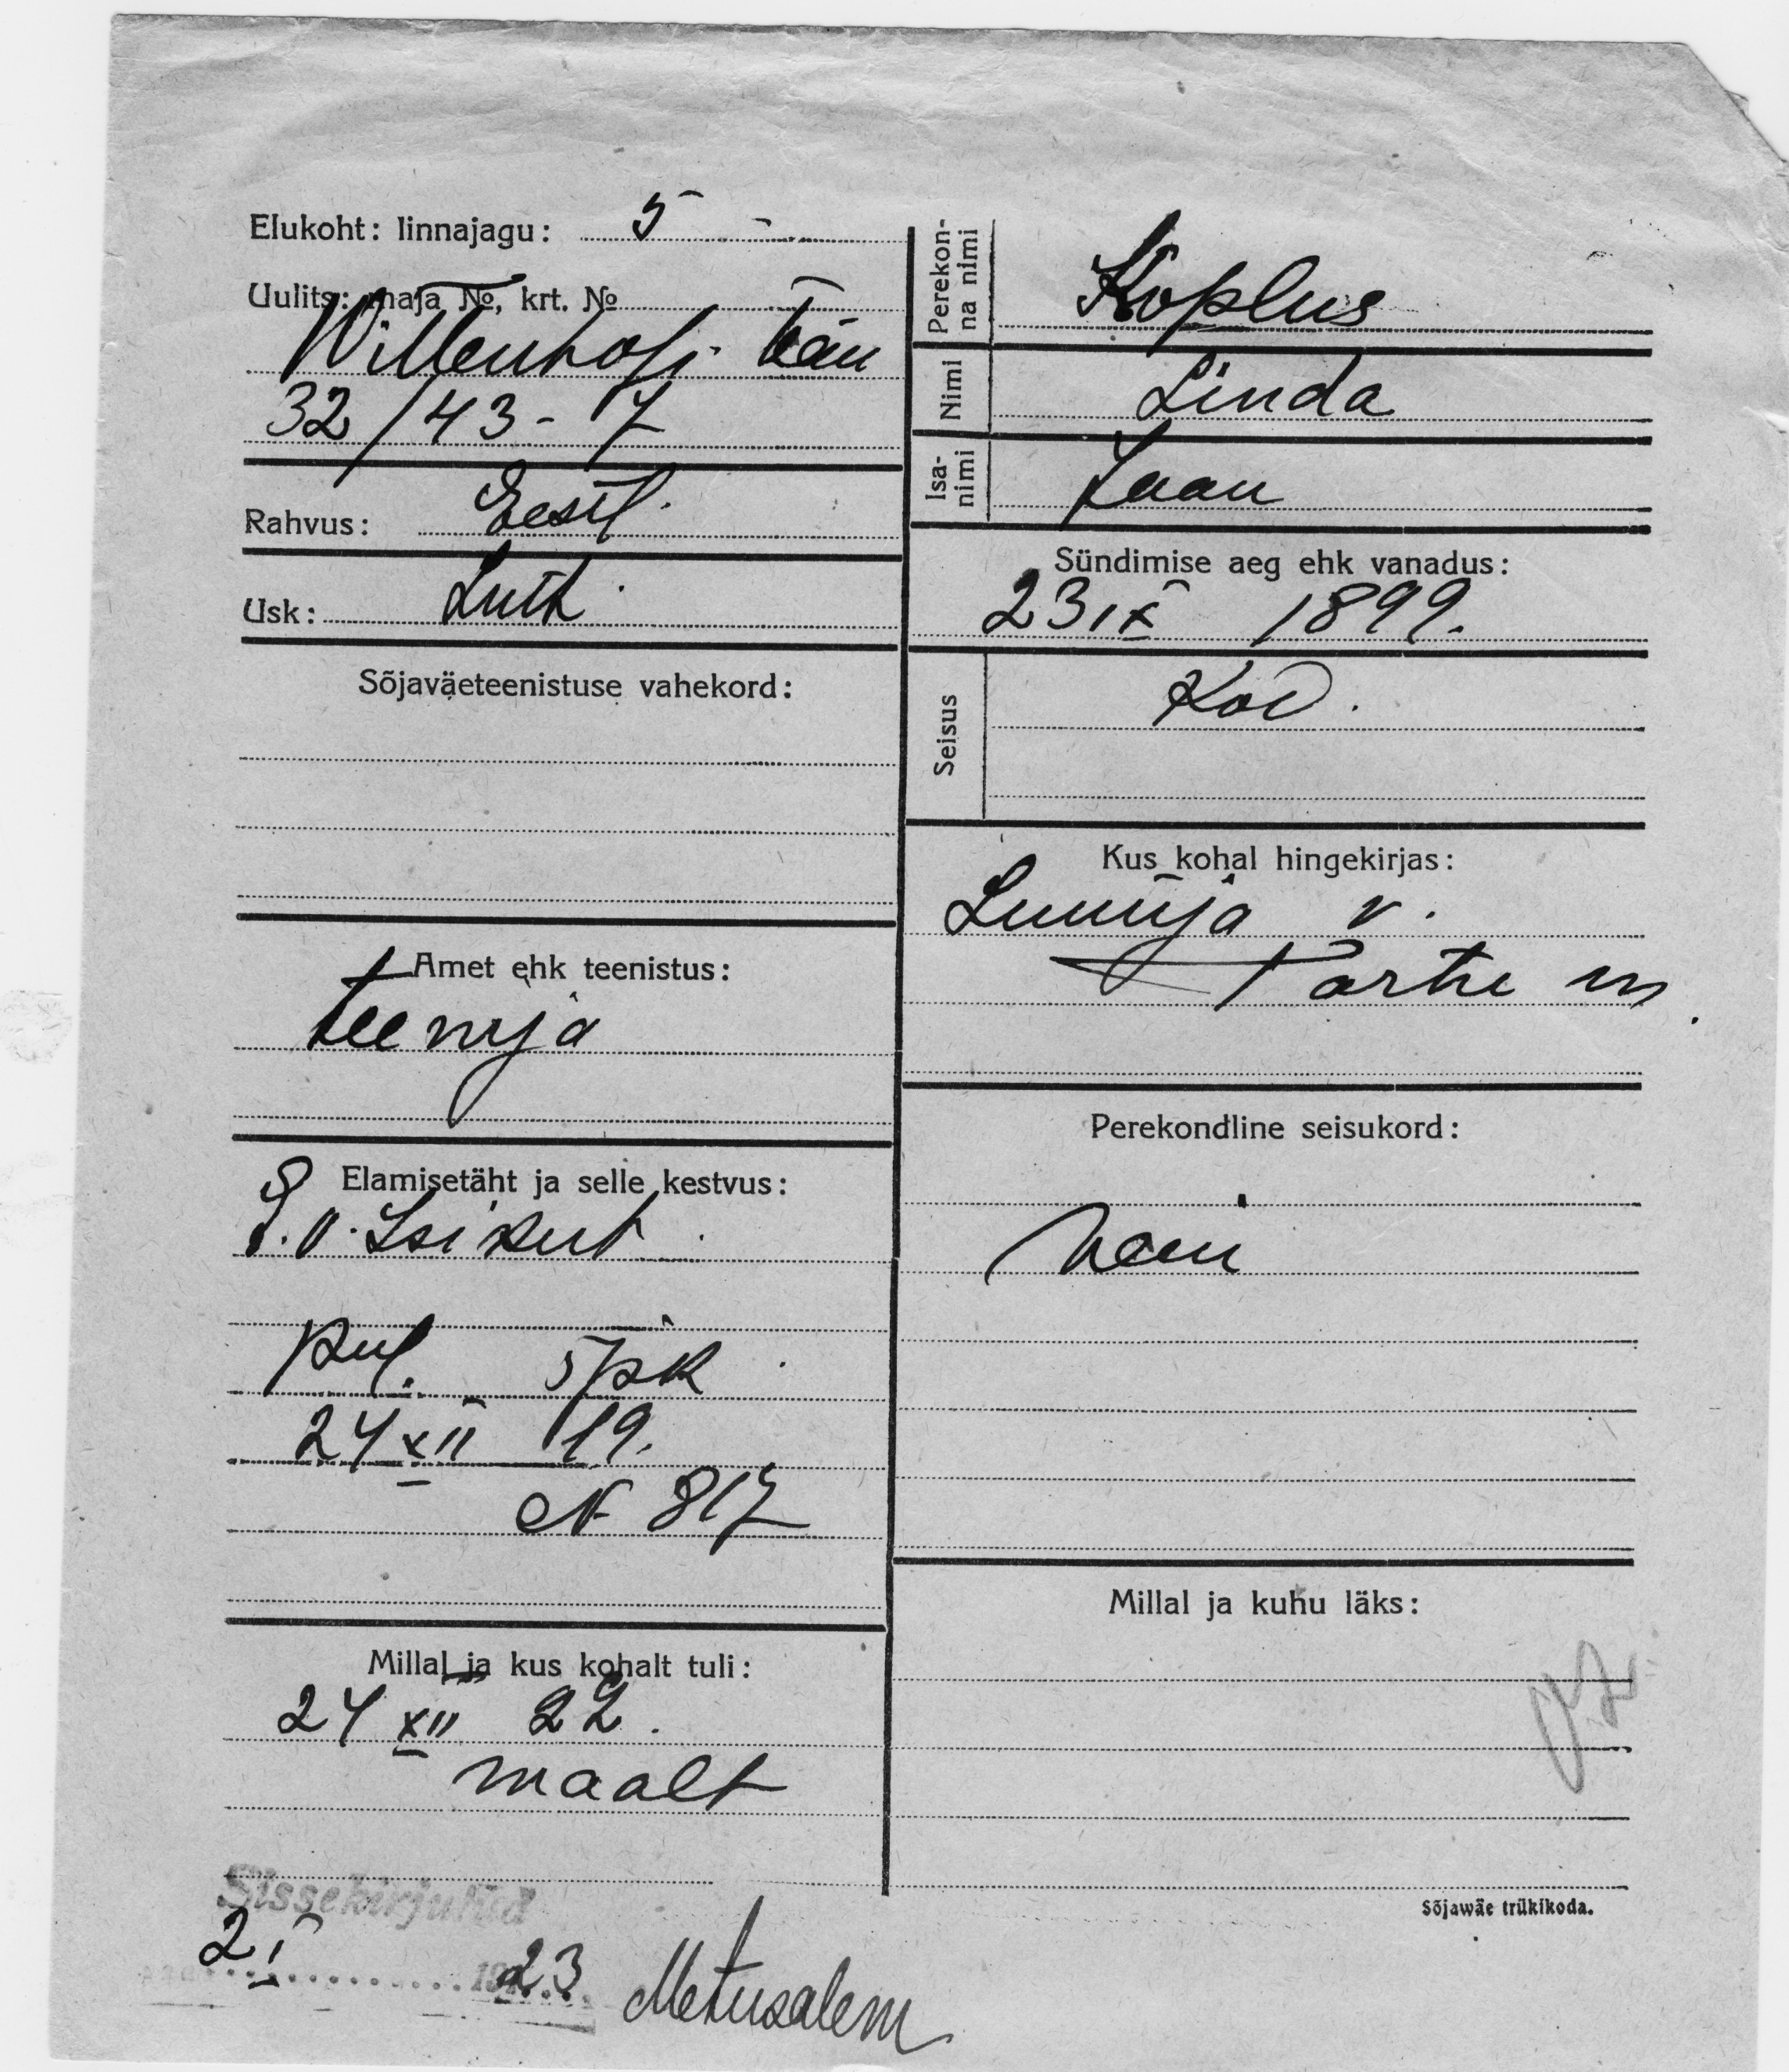 Elukoht: linnajagu: 5
Uulits: maja №, krt. №
Wittenhofi tän
32/43-7
Rahvus: Eestl.
Usk: Luth.
Sõjaväeteenistuse vahekord:
Amet ehk teenistus:
teenija
Elamisetäht ja selle kestvus:
E. V. Isikut.
pol. 5 jsk
24 XII 19.
N 817
Millal ja kus kohalt tuli:
24 XII 22.
maalt
Sissekirjutud
2 I 1923
Metusalem
Perekonna nimi
Koplus
Nimi
Linda
Isanimi
Jaan
Sündimise aeg ehk vanadus:
23 IX 1899.
Seisus
Kod.
Kus kohal hingekirjas:
Luunja v.
Tartu m.
Perekondline seisukord:
Millal ja kuhu läks:
Sõjawäe trükikoda.